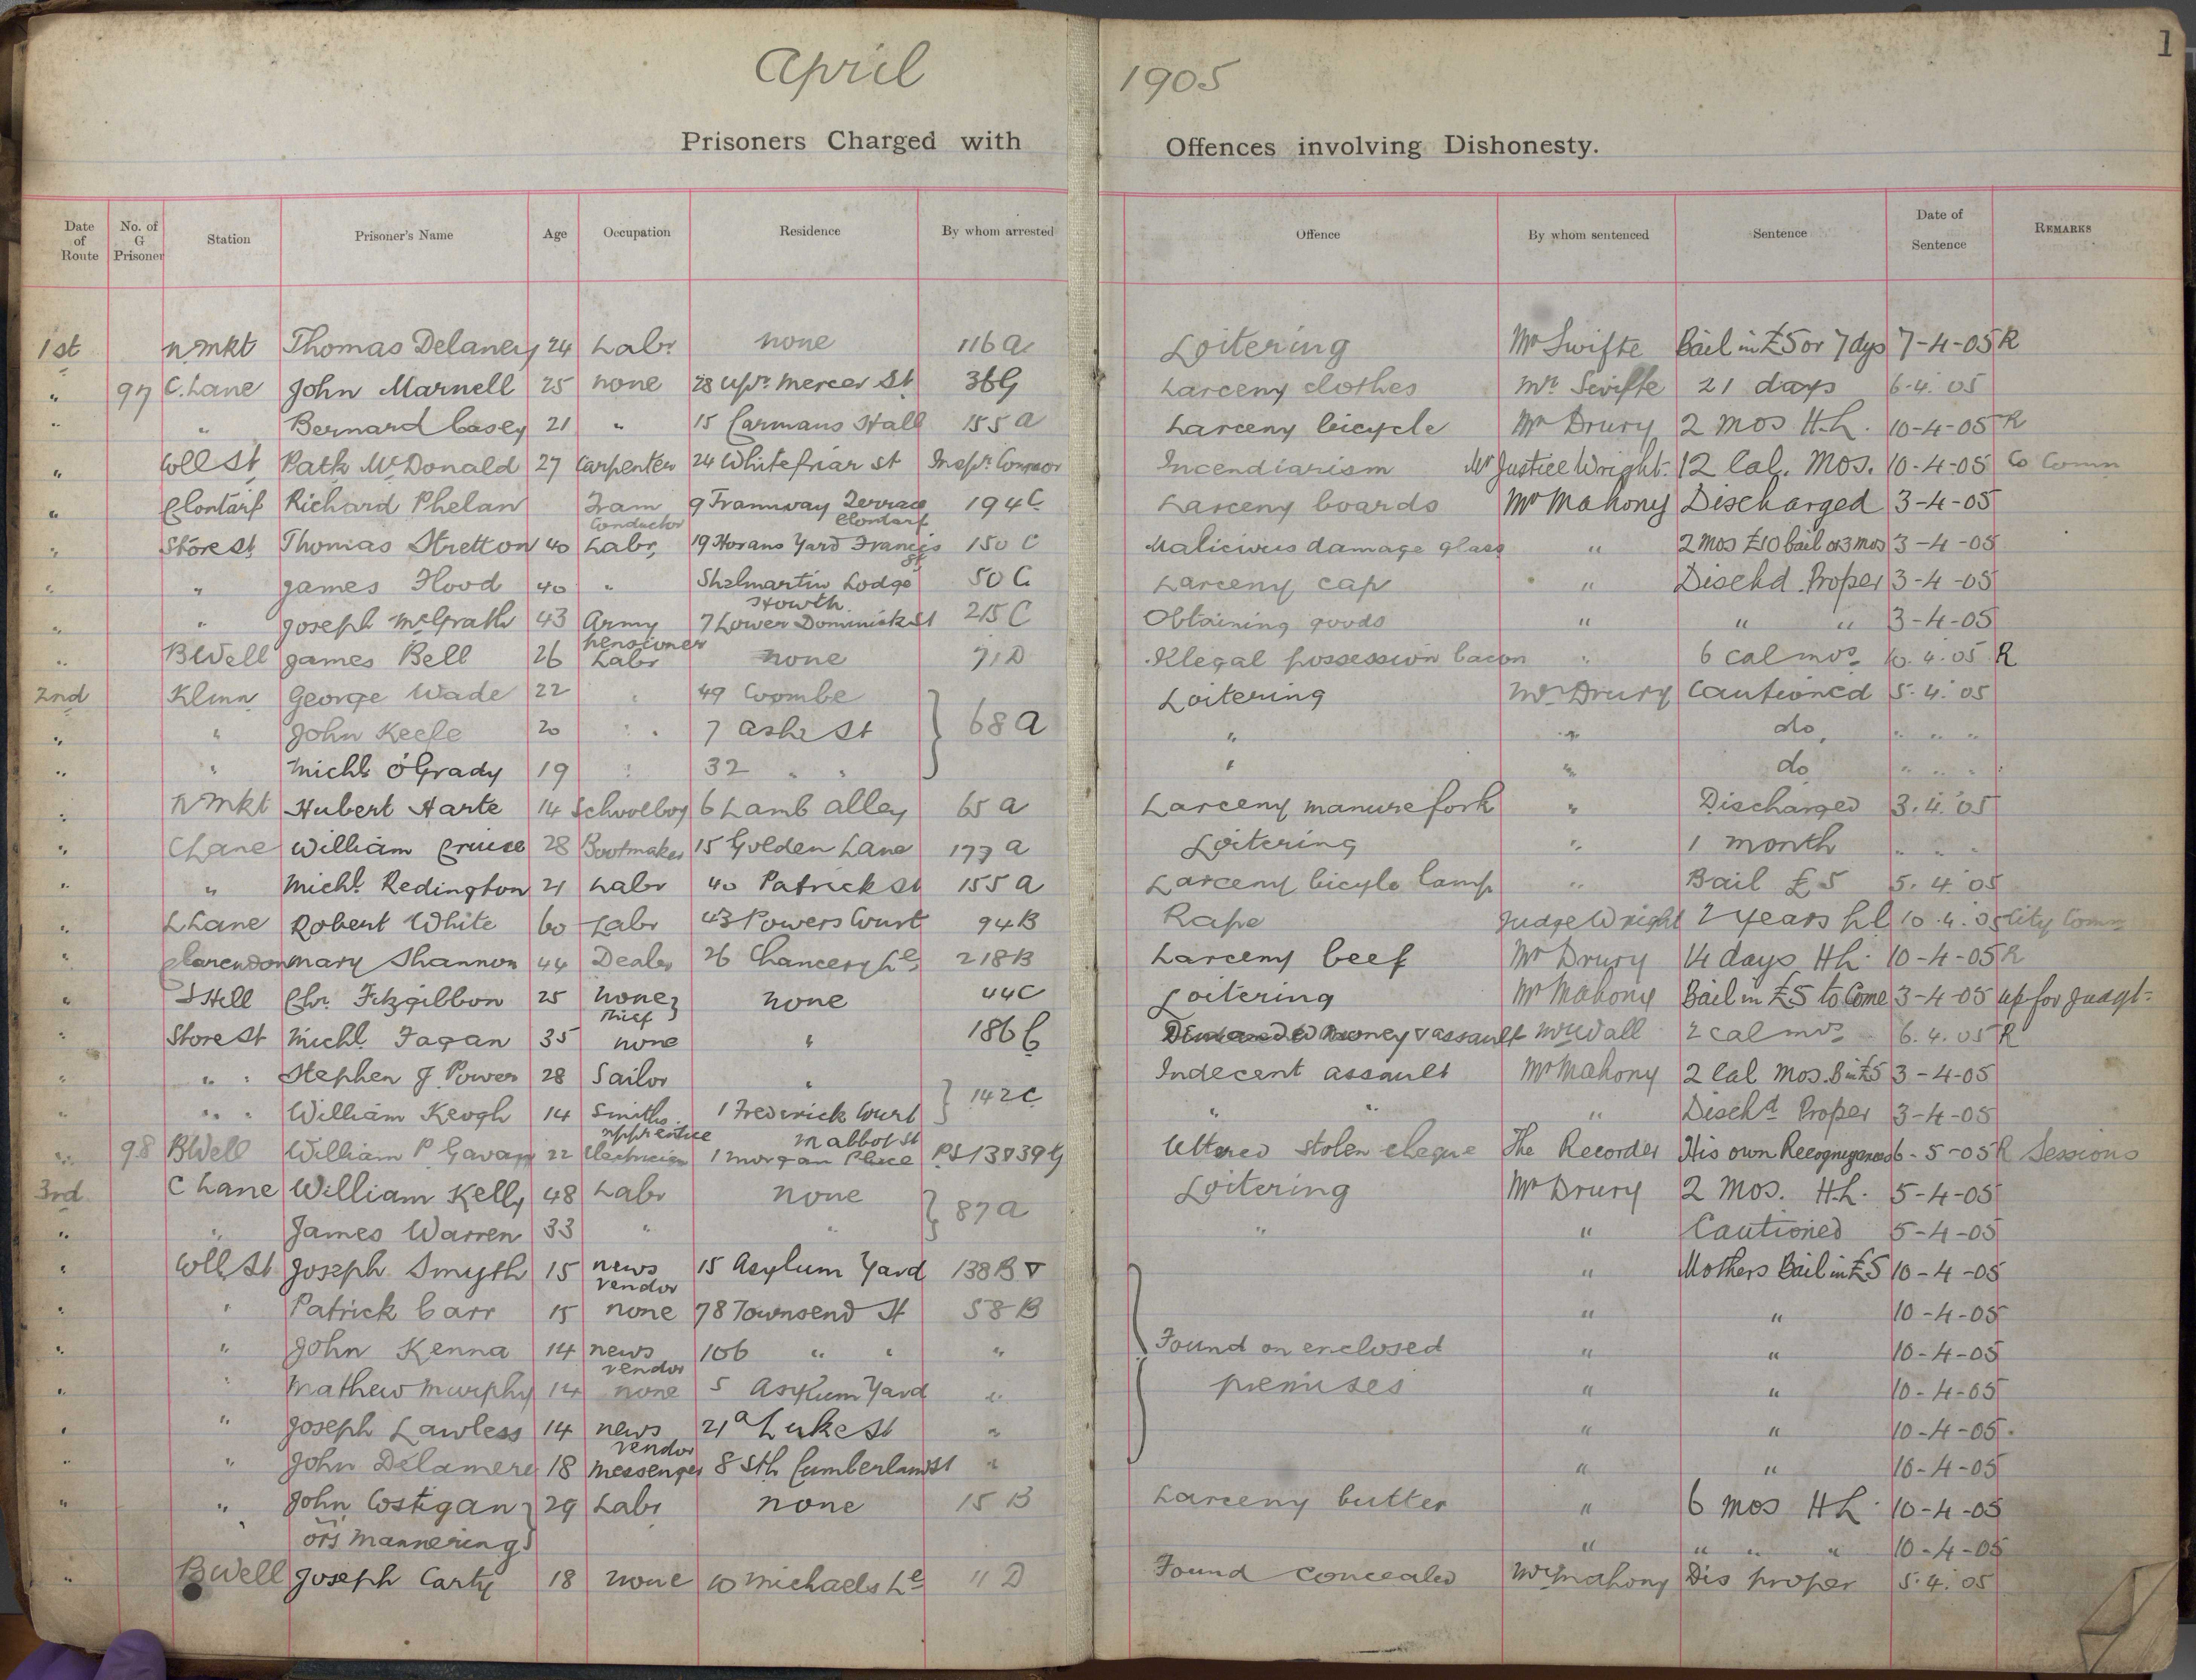 1
April 1905
Prisoners Charged with Offences involving Dishonesty.
Date of Route | No. of G Prisoner | Station | Prisoner's Name | Age | Occupation | Residence | By whom arrested | Offence | By whom sentenced | Sentence | Date of Sentence | REMARKS
1st N. Mkt Thomas Delaney 24 Labr. none 116 A Loitering Mr Swifte Bail in £5 or 7 dys 7-4-05 R
" 97 C. Lane John Marnell 25 none 28 Upr. Mercer St 36 G Larceny clothes Mr. Swifte 21 days 6.4.05
" " Bernard Casey 21 " 15 Carmans Hall 155 A Larceny bicycle Mr Drury 2 mos H.L. 10-4-05 R
" Coll St Patk McDonald 27 Carpenter 24 Whitefriar St Inspr. Connor Incendiarism Mr Justice Wright 12 Cal. Mos. 10-4-05 Co Comn
" Clontarf Richard Phelan Tram Conductor 9 Tramway Terrace Clontarf 194 C Larceny boards Mr Mahony Discharged 3-4-05
" Store St Thomas Stretton 40 Labr. 19 Horans Yard Francis St 150 C Malicious damage glass " 2 Mos £10 bail or 3 mos 3-4-05
" " James Flood 40 " Shelmartin Lodge Howth 50 C Larceny cap " Dischd. Proper 3-4-05
" " Joseph McGrath 43 Army pensioner 7 Lower Dominick St 215 C Obtaining goods " " " 3-4-05
" BWell James Bell 26 Labr none 71 D Illegal possession bacon " 6 cal mos 10.4.05 R
2nd Kmn George Wade 22 " 49 Coombe 68 A Loitering Mr Drury Cautioned 5.4.05
" " John Keefe 20 " 7 Ashe St " " do " " "
" " Michl O'Grady 19 " 32 " " " " do " " "
" N Mkt Hubert Harte 14 Schoolboy 6 Lamb Alley 65 A Larceny manure fork " Discharged 3.4.05
" C Lane William Cruise 28 Bootmaker 15 Golden Lane 177 A Loitering " 1 month " " "
" " Michl. Redington 21 Labr 40 Patrick St 155 A Larceny bicycle lamp " Bail £5 5.4.05
" L Lane Robert White 60 Labr 43 Powers Court 94 B Rape Judge Wright 2 years hl 10.4.05 City Comn
" Clarendon Mary Shannon 44 Dealer 26 Chancery Le 218 B Larceny beef Mr Drury 14 days H.L. 10-4-05 R
" S Hill Chr. Fitzgibbon 25 none thief none 44 C Loitering Mr Mahony Bail in £5 to Come 3-4-05 up for Judgt
" Store St Michl. Fagan 35 none " 186 C Demanded money & assault Mr Wall 2 cal mos 6.4.05 R
" " " Stephen J. Power 28 Sailor " 142 C Indecent assault Mr Mahony 2 Cal Mos. B in £5 3-4-05
" " " William Keogh 14 Smiths apprentice 1 Frederick Court Mabbot St " " " Dischd Proper 3-4-05
" 98 BWell William P Gavan 22 Electrician 1 Morgan Place PS 13 & 39 G Uttered stolen cheque The Recorder His own Recognizances 6-5-05 R Sessions
3rd C Lane William Kelly 48 Labr none 87 A Loitering Mr Drury 2 Mos. H.L. 5-4-05
" " James Warren 33 " " " " Cautioned 5-4-05
" Coll St Joseph Smyth 15 news vendor 15 Asylum Yard 138 B & " Mothers Bail in £5 10-4-05
" " Patrick Carr 15 none 78 Townsend St 58 B " " 10-4-05
" " John Kenna 14 news vendor 106 " " " Found on enclosed " " 10-4-05
" " Mathew Murphy 14 none 5 Asylum Yard " premises " " 10-4-05
" " Joseph Lawless 14 news vendor 21a Luke St " " " 10-4-05
" " John Delamere 18 messenger 8 Sth Cumberland St " " " 10-4-05
" " John Costigan 29 Labr none 15 B Larceny butter " 6 mos H L 10-4-05
" ors Mannering " " " " 10-4-05
" BWell Joseph Carty 18 none 10 Michaels Le 11 D Found concealed Mr Mahony Dis proper 5.4.05